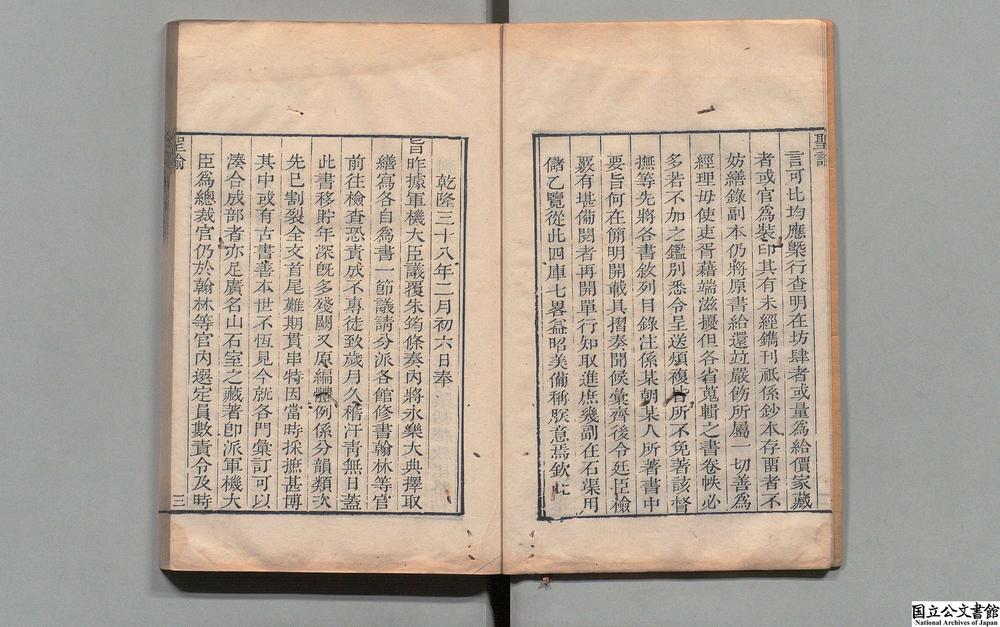 聖諭
言可比均應槩行查明在坊肆者或量爲給價家藏
者或官爲裝印其有未經鐫刊祇係鈔本存畱者不
妨繕錄副本仍將原書給還竝嚴飭所屬一切善爲
經理毋使吏胥藉端滋擾但各省蒐輯之書卷帙必
多若不加之鑑別悉令呈送煩複皆所不免著該督
撫等先將各書敘列目錄注係某朝某人所著書中
要旨何在簡明開載具摺奏聞候彙齊後令廷臣檢
覈有堪備閱者再開單行知取進庶幾副在石渠用
儲乙覽從此四庫七畧益昭美備稱朕意焉欽此
乾隆三十八年二月初六日奉
旨昨據軍機大臣議覆朱筠條奏內將永樂大典擇取
繕寫各自爲書一節議請分派各館修書翰林等官
前往檢查恐責成不專徒致歲月久稽汗靑無日蓋
此書移貯年深旣多殘闕又原編體例係分韻類次
先已割裂全文首尾難期貫串特因當時採摭甚博
其中或有古書善本世不恆見今就各門彙訂可以
湊合成部者亦足廣名山石室之藏著卽派軍機大
臣爲總裁官仍於翰林等官內選定員數責令及時
聖諭
三
国立公文書館
National Archives of Japan